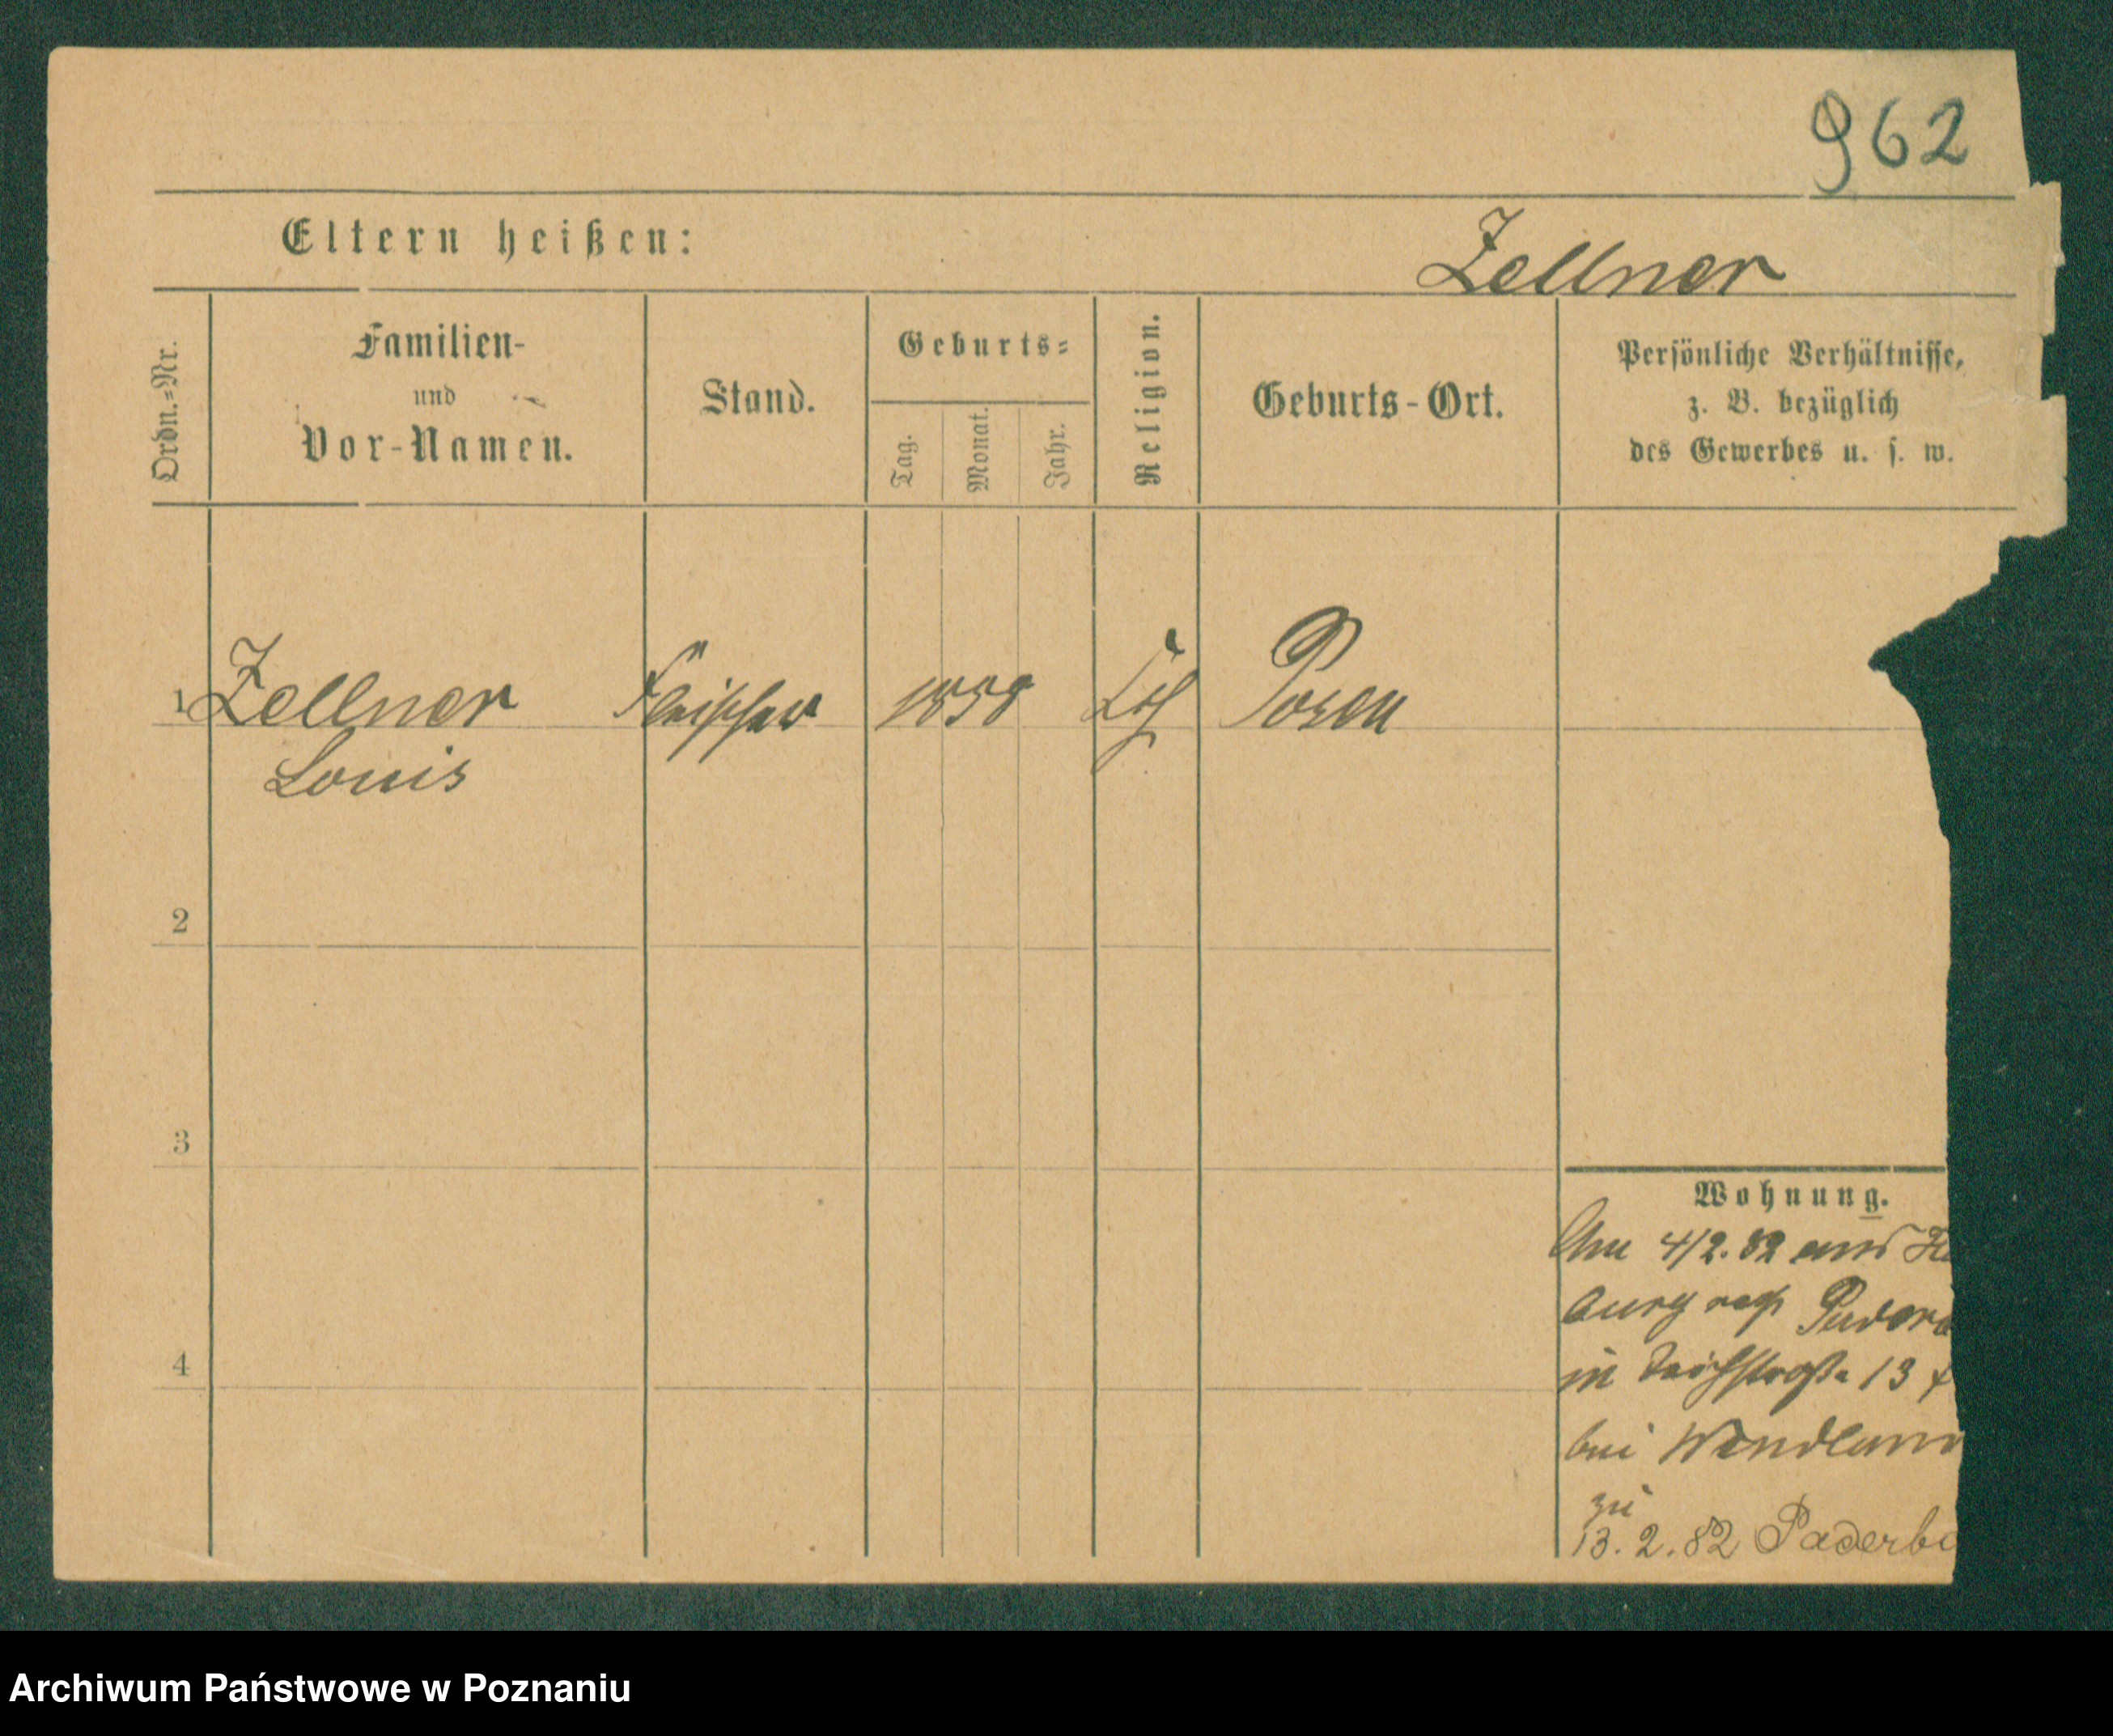 962
Eltern heißen:
Zellner
Ordn.=Nr.
Familien-
und
Vor-Namen.
Stand.
Geburts=
Tag.
Monat.
Jahr.
Religion.
Geburts-Ort.
Persönliche Verhältnisse,
z. B. bezüglich
des Gewerbes u. s. w.
1 Zellner Fleischer 1858 Posen
Louis
2
3
4
Wohnung.
4/2.82 aus
burg
in Teichstraße 13
bei Wendland
zu
13.2.82 Paderbo
Archiwum Państwowe w Poznaniu